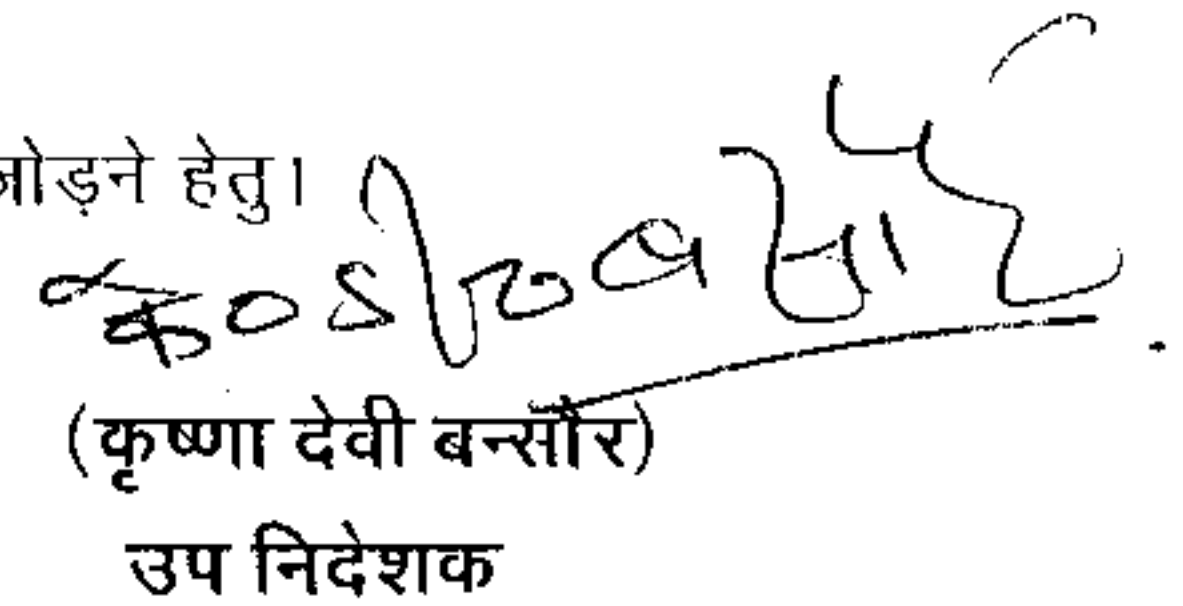 जोड़ने हेतु।
(कृष्णा देवी बन्सौर)
उप निदेशक